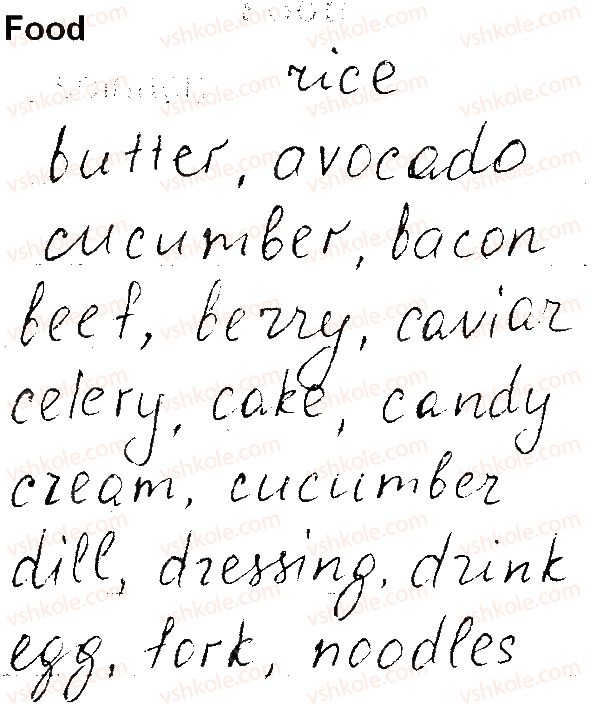 Food
rice
butter, avocado
cucumber, bacon
beef, berry, caviar
celery, cake, candy
cream, cucumber
dill, dressing, drink
egg, fork, noodles
vshkole.com